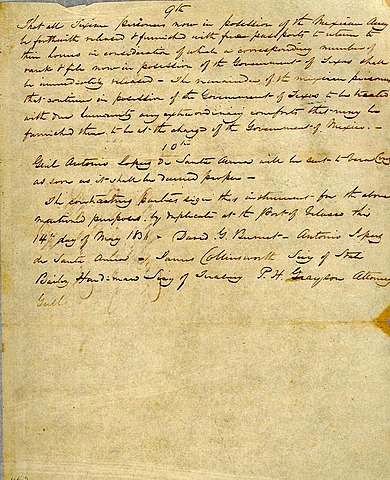 9th
That all Texian prisoners now in possession of the Mexican Army
be forthwith released & furnished with free passports to return to
their homes in consideration of which a corresponding number of
rank & file now in possession of the Government of Texas shall
be immediately released - The remainder of the mexican prisoners
that continue in possession of the Government of Texas to be treated
with due humanity any extraordinary comforts that may be
furnished them to be at the charge of the Government of Mexico -
10th
Genl Antonio Lopez de Santa Anna will be sent to Vera Cruz
as soon as it shall be deemed proper -
The contracting parties sign this instrument for the above
mentioned purposes, by duplicate at the Port of Velasco this
14th day of May 1836 - David G. Burnet - Antonio Lopez
de Santa Anna - James Collinsworth Secy of State
Bailey Hardiman Secy of Treasury P. H Grayson Attorney
Genl